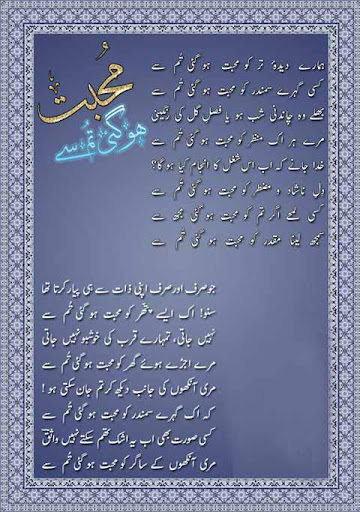 محبت
ہو گئی تم سے
ہمارے دیدۂ تر کو محبت ہو گئی تم سے
کسی گہرے سمندر کو محبت ہو گئی تم سے
بھلے وہ چاندنی شب ہو یا فصلِ گل کی رنگینی
مرے ہر اک منظر کو محبت ہو گئی تم سے
خدا جانے کہ اب اس شغل کا انجام کیا ہو گا؟
دلِ ناشاد و مضطر کو محبت ہو گئی تم سے
کسی لمحے اگر تم کو محبت ہو گئی مجھ سے
سمجھ لینا مقدر کو محبت ہو گئی تم سے
جو صرف اور صرف اپنی ذات سے ہی پیار کرتا تھا
سنو! اک ایسے پتھر کو محبت ہو گئی تم سے
نہیں جاتی، تمہارے قرب کی خوشبو نہیں جاتی
مرے اجڑے ہوئے گھر کو محبت ہو گئی تم سے
مری آنکھوں کی جانب دیکھ کر تم جان سکتی ہو!
کہ اک گہرے سمندر کو محبت ہو گئی تم سے
کسی صورت بھی اب یہ اشک تھم سکتے نہیں واثق
مری آنکھوں کے ساگر کو محبت ہو گئی تم سے